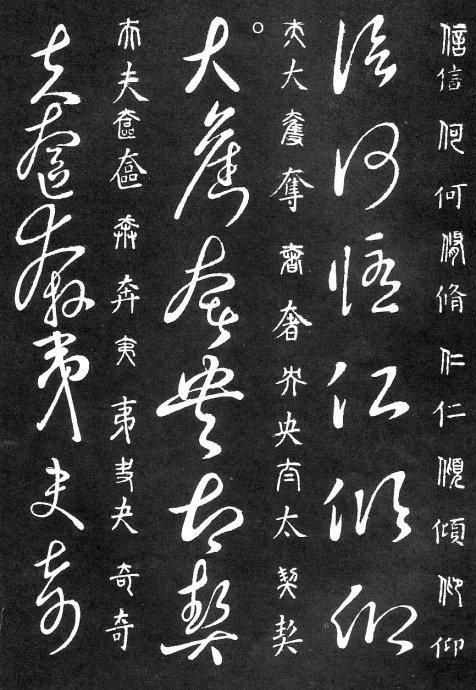 信信何何脩脩仁仁傾傾仰仰
信何脩仁傾仰
○大大奪奪奢奢央央太太契契
大奪奢央太契
夫夫奩奩奔奔夷夷夬夬奇奇
夫奩奔夷夬奇